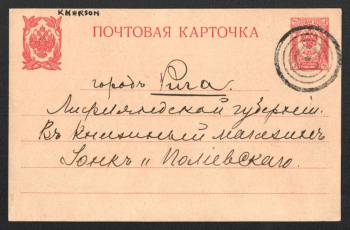 KHERSON
ПОЧТОВАЯ КАРТОЧКА
городъ Рига.
Лифляндской губерніи.
Въ книжный магазинъ
Іонкъ и Поліевскаго.